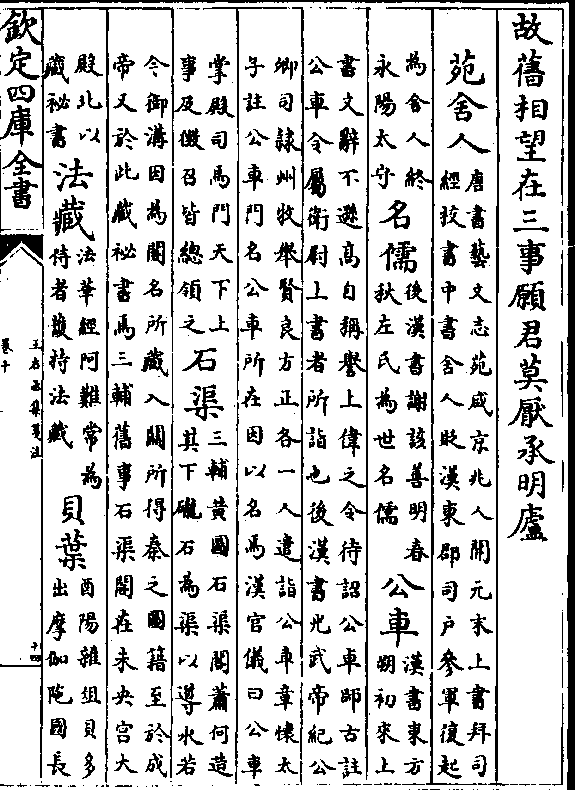 故舊相望在三事願君莫厭承明廬
苑舍人
唐書藝文志苑咸京兆人開元末上書拜司
經校書中書舍人貶漢東郡司戶參軍復起
為舍人終
永陽太守
名儒
後漢書謝該善明春
秋左氏為世名儒
公車
漢書東方
朔初來上
書文辭不遜高自稱譽上偉之令待詔公車師古註
公車令屬衛尉上書者所詣也後漢書光武帝紀公
卿司隷州牧舉賢良方正各一人遣詣公車章懷太
子註公車門名公車所在因以名焉漢官儀曰公車
掌殿司馬門天下上
事及徵召皆總領之
石渠
三輔黄圖石渠閣蕭何造
其下礲石為渠以導水若
今御溝因為閣名所藏入關所得秦之圖籍至於成
帝又於此藏祕書焉三輔舊事石渠閣在未央宫大
殿北以
藏祕書
法藏
法華經阿難常為
侍者䕶持法藏
貝葉
酉陽雜俎貝多
出摩伽陁國長
欽定四庫全書
王右丞集箋注
卷十
十四